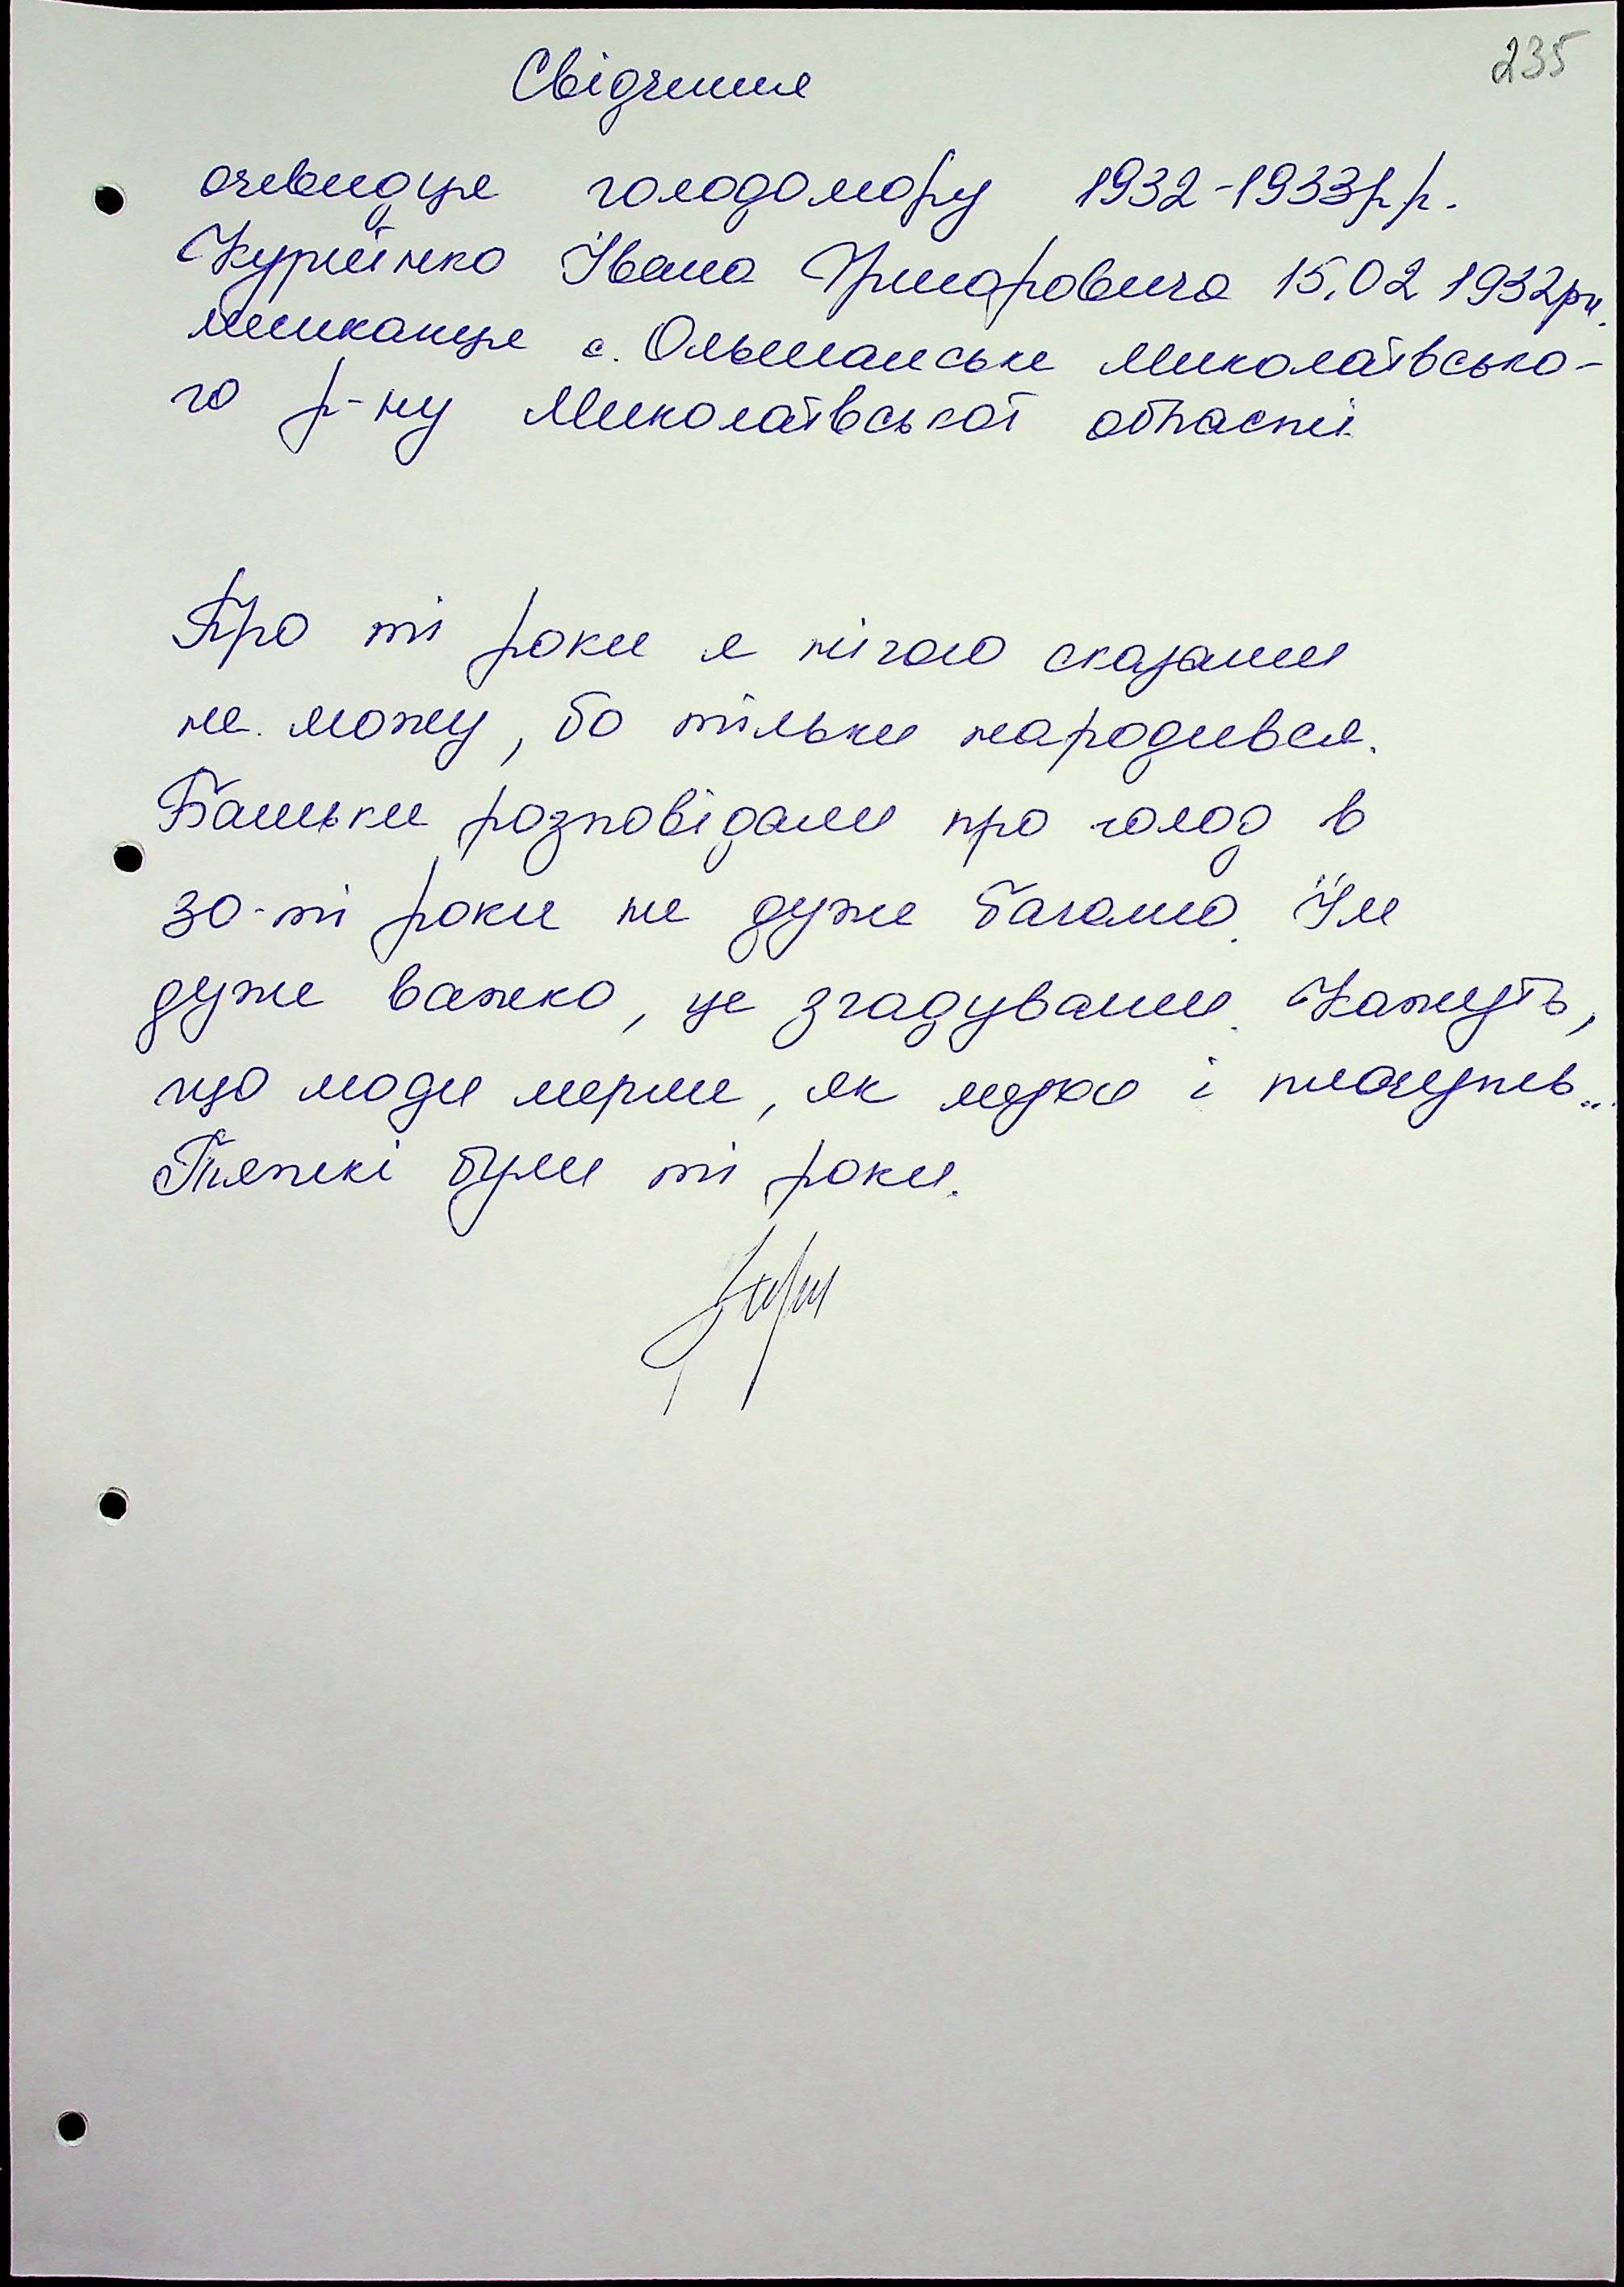 235
Свідчення
очевидця голодомору 1932-1933р.р.
Івана 15.02 1932рн.
мешканця с. Ольшанське Миколаївсько-
го р-ну Миколаївської області
Про ті роки я нічого сказати
не можу, бо тільки народився.
Батьки розповідали про голод в
30-ті роки не дуже багато. Їм
дуже важко, це згадувати. Кажуть,
що люди мерли, як мухи і плачуть...
Тяжкі були ті роки.